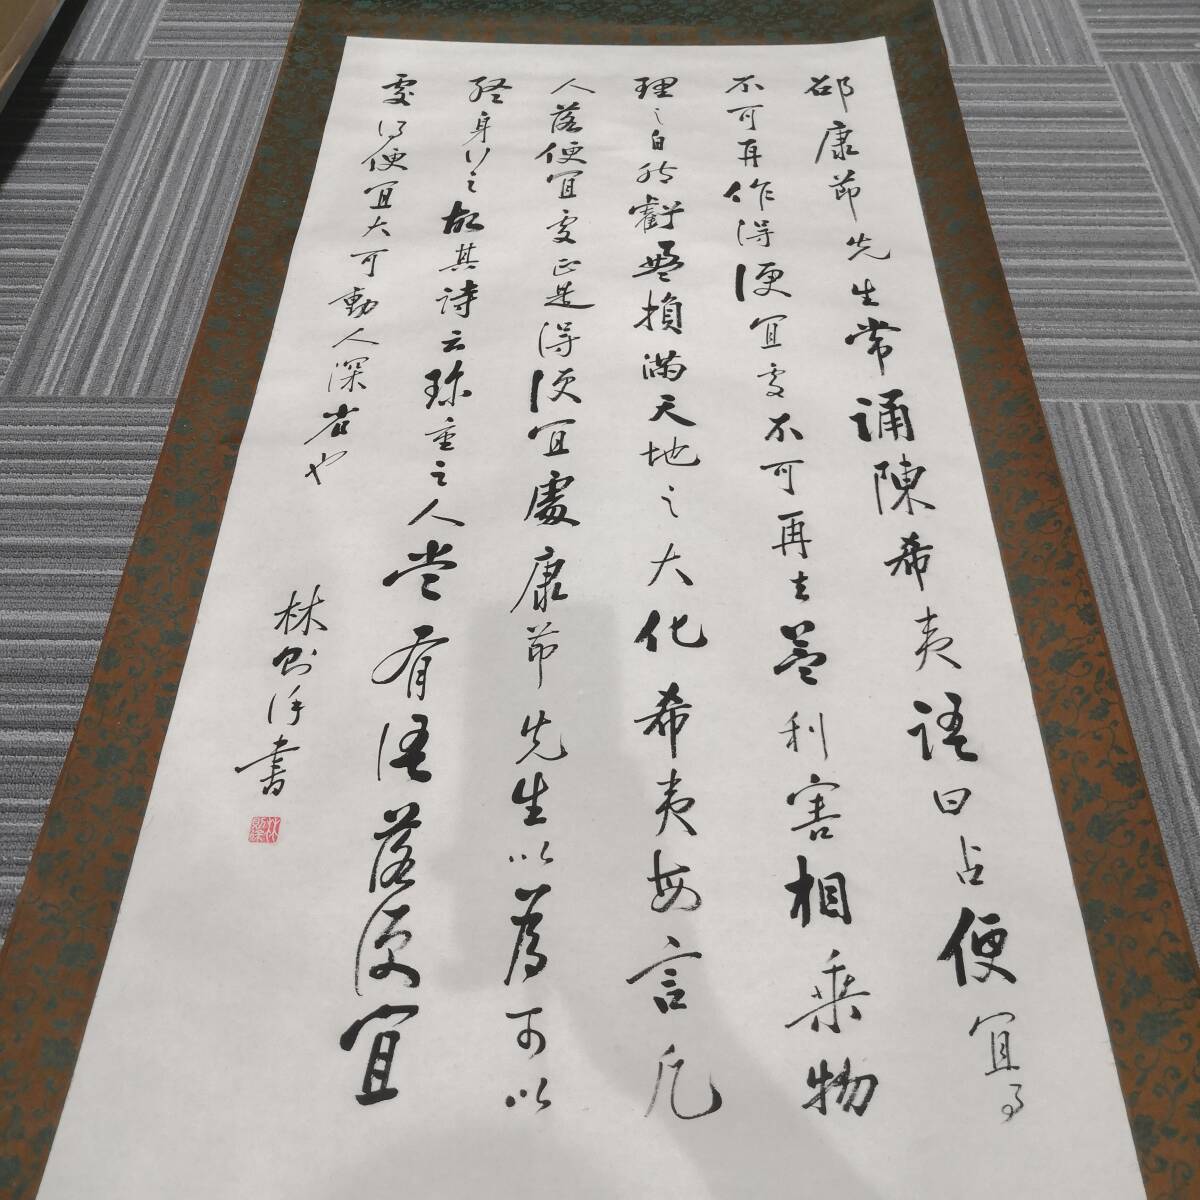 邵康節先生常誦陳希夷語曰占便宜事
不可再作得便宜處不可再去蓋利害相乘物
理之自然虧盈損滿天地之大化希夷每言凡
人落便宜處正是得便宜處康節先生以為可以
終身行之故其詩云珍重至人嘗有語落便宜
處得便宜大可動人深省也
林則徐書
林則徐